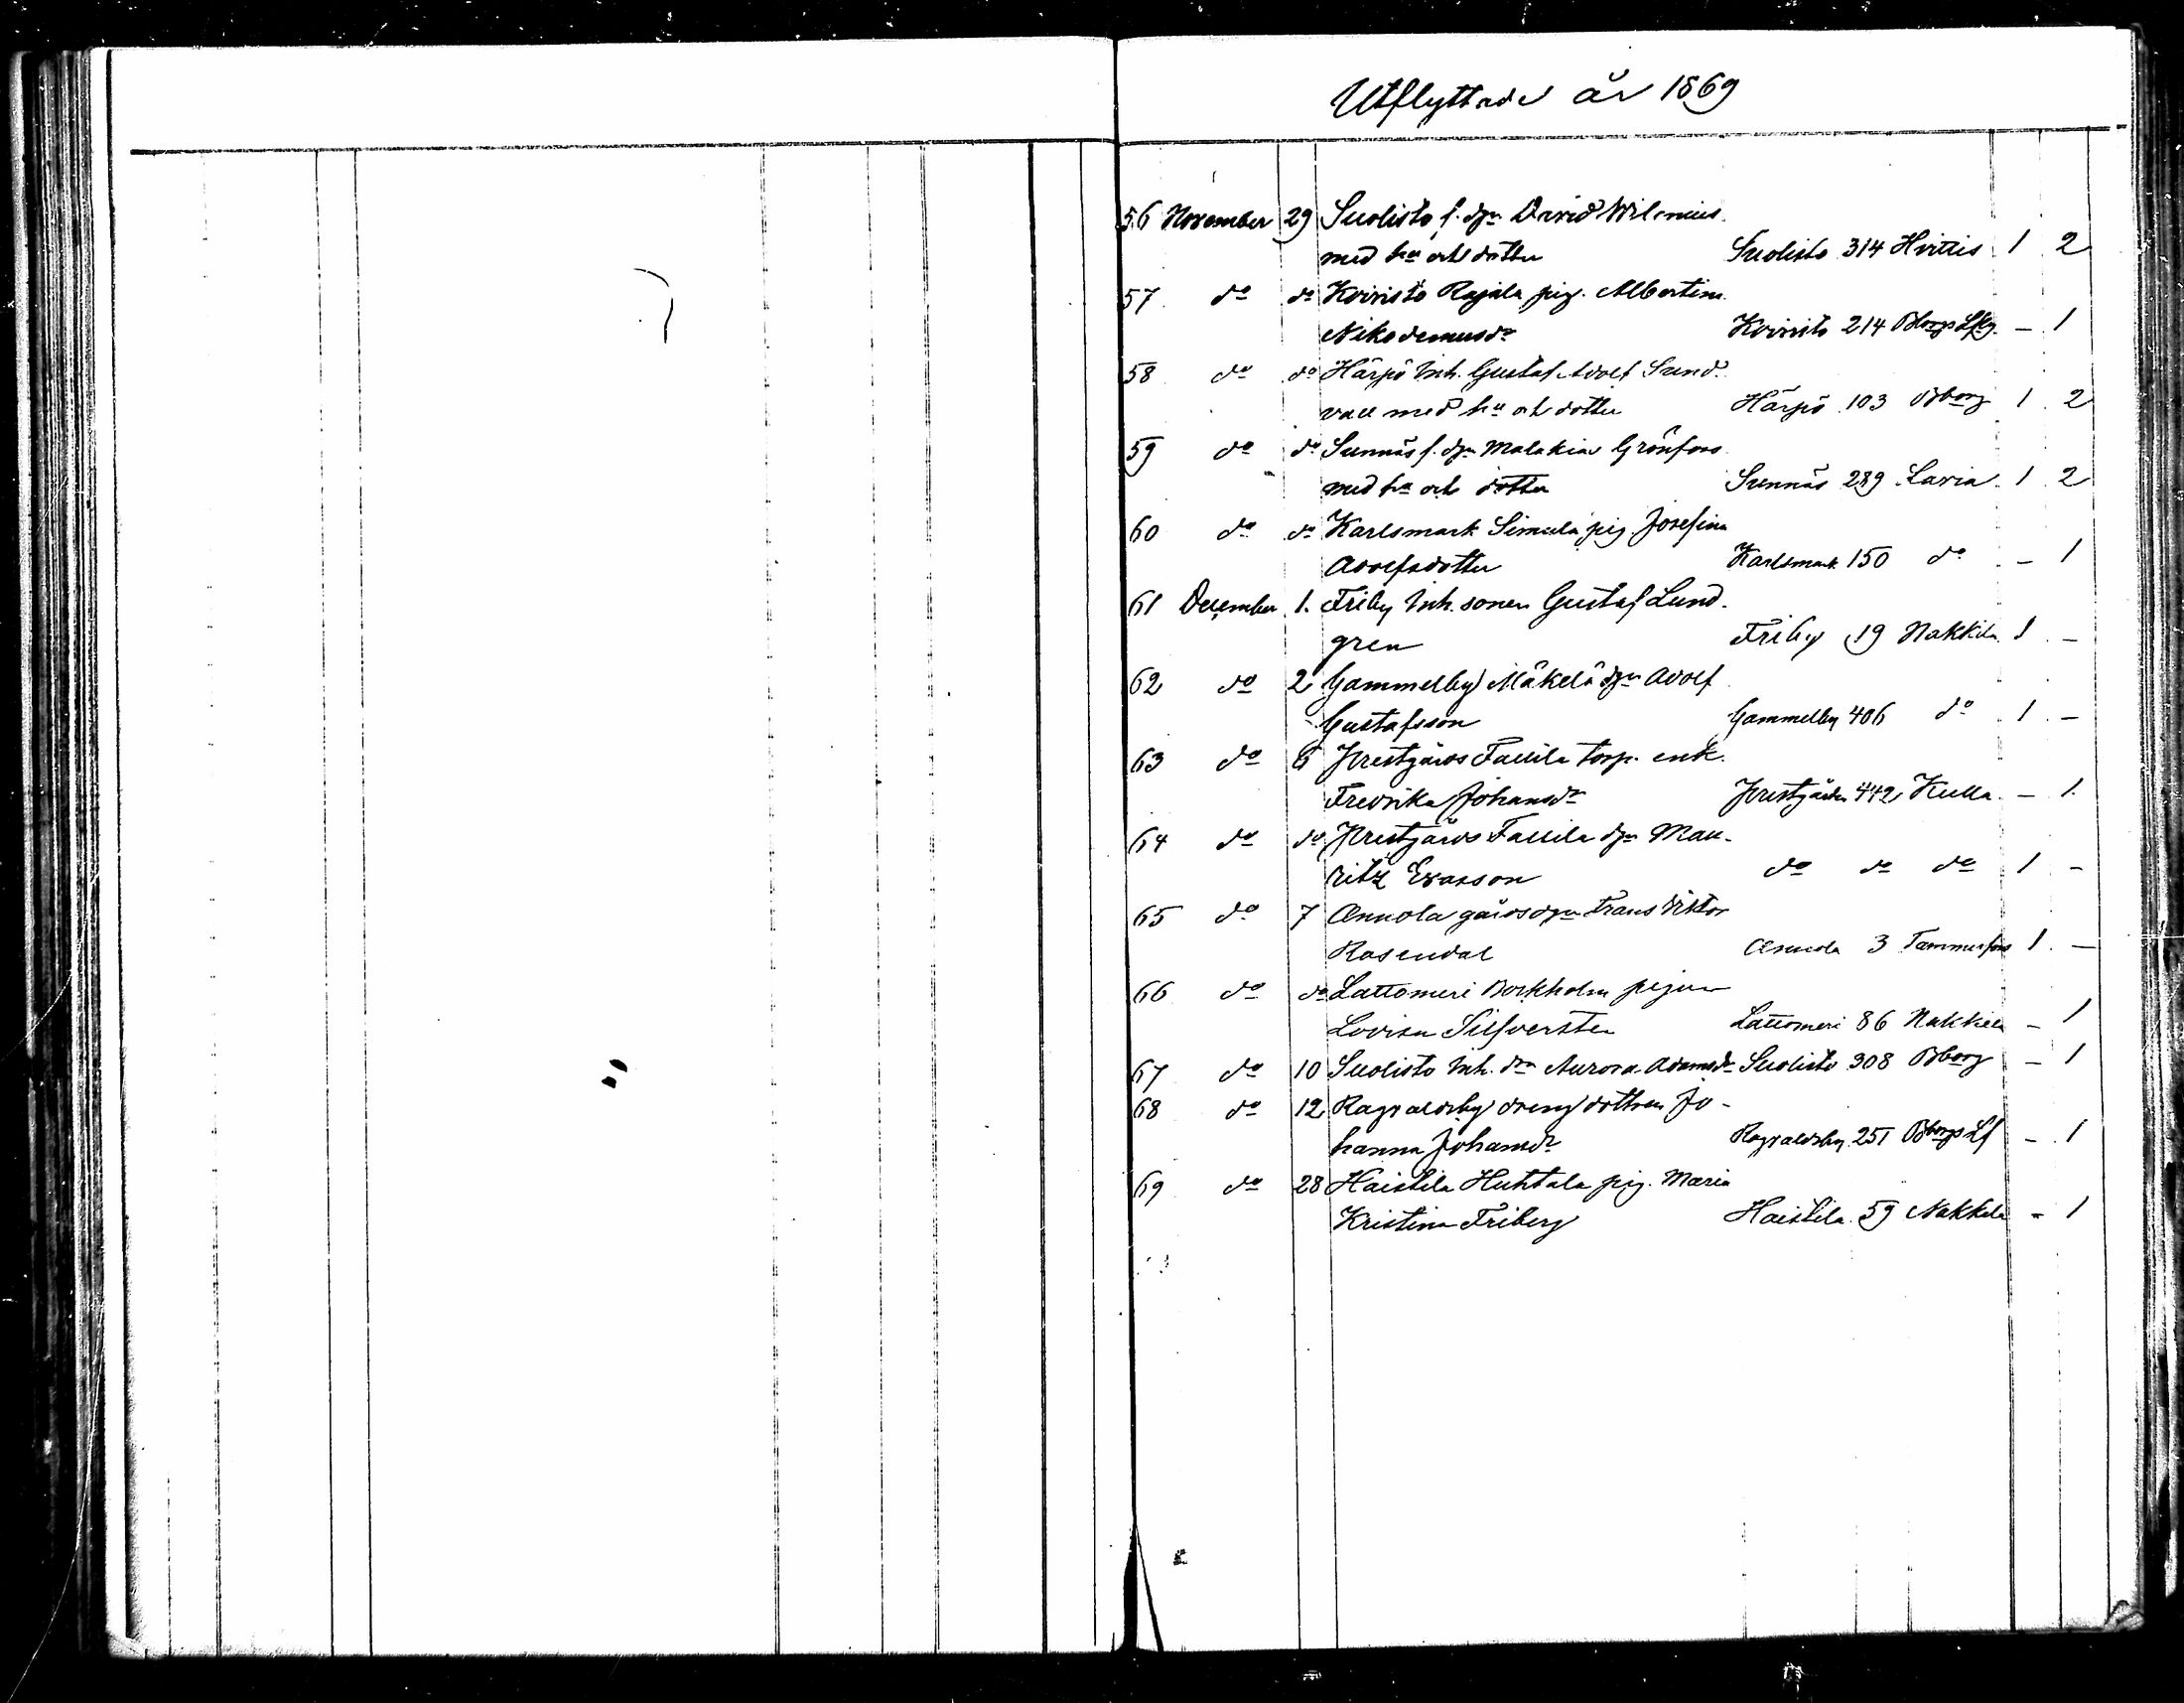 Utflyttade år 1869
56 November 29 Suolisto f. dgn David Wilenius
med hu och dotter Suolisto 314 Hvittis 1 2
57 do do Koivisto Rajala pig. Albertina
Nikodemusdr Koivisto 214 Bborgs Lfkg. - 1
58 do do Härpö Inh. Gustaf Adolf Sund-
vall med hu och dotter Härpö 103 Bborg 1 2
59 do do Sunnäs f. dgn Malakias Grönfors
med hu och dotter Sunnäs 289 Lavia 1 2
60 do do Karlsmark Simula pig Josefina
Adolfsdotter Karlsmark 150 do - 1
61 December 1. Friby Inh. sonen Gustaf Lund-
gren Friby 19 Nakkila 1 -
62 do 2 Gammelby Mäkelä dgn Adolf
Gustafsson Gammelby 406 do 1 -
63 do 6 Prestgårds Fallila torp. enk.
Fredrika Johansdr Prestgården 442 Kulla - 1.
64 do do Prestgårds Fallila dgn Mau-
ritz Evasson do do do 1 -
65 do 7 Annola gårdsdgn Frans Viktor
Rosendal Annola 3 Tammerfors 1 -
66 do do Lattomeri Borkholm pigan
Lovisa Silfversten Lattomeri 86 Nakkila - 1
67 do 10 Suolisto Inh. drn Aurora Adamsdr Suolisto 308 Bborg - 1
68 do 12 Ragvaldsby dreng dottren Jo-
hanna Johansdr Ragvaldsby 251 Bborgs Lf - 1
69 do 28 Haistila Huhtala pig. Maria
Kristina Friberg Haistila 59 Nakkila - 1